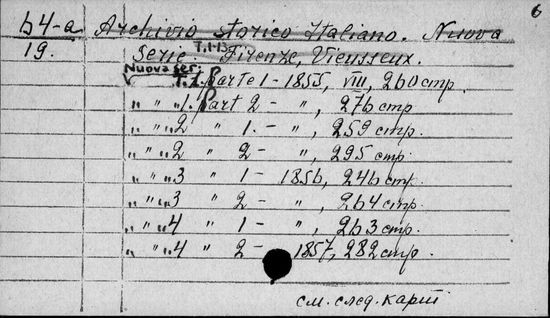 б
b4-a Archivio storico Italiano. Nuova
19. serie. T.1-13 Firenze, Vieusseux.
Nuova ser.
T.1. Parte 1 - 1855, VIII, 260 стр.
" " 1. Part 2 - ", 276 стр.
" " 2 " 1. - ", 259 стр.
" " 2 " 2 - ", 295 стр.
" " 3 " 1 - 1856, 246 стр.
" " 3 " 2 - ", 264 стр.
" " 4 " 1 - ", 263 стр.
" " 4 " 2 - 1857, 282 стр.
см. след. карт